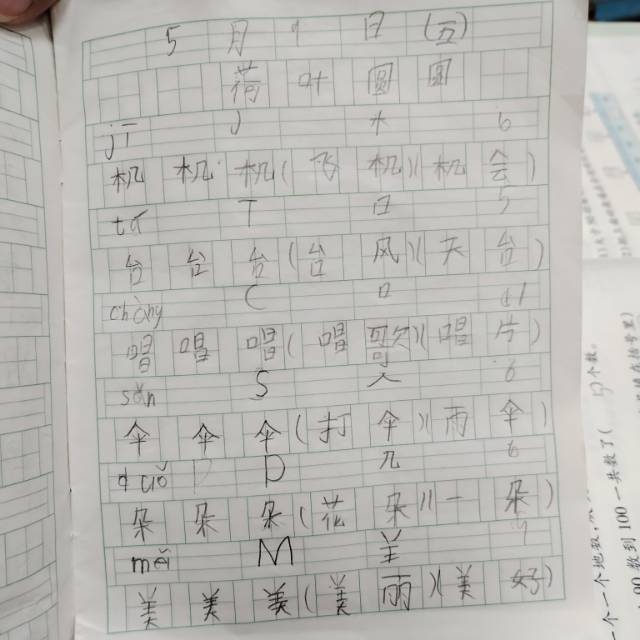 5月9日(五)
荷叶圆圆
jī J 木 6
机 机 机(飞机)(机会)
tái T 口 5
台 台 台(台风)(天台)
chàng C 口 11
唱 唱 唱(唱歌)(唱片)
sǎn S 人 6
伞 伞 伞(打伞)(雨伞)
duǒ D 几 6
朵 朵 朵(花朵)(一朵)
měi M 羊 9
美 美 美(美雨)(美好)